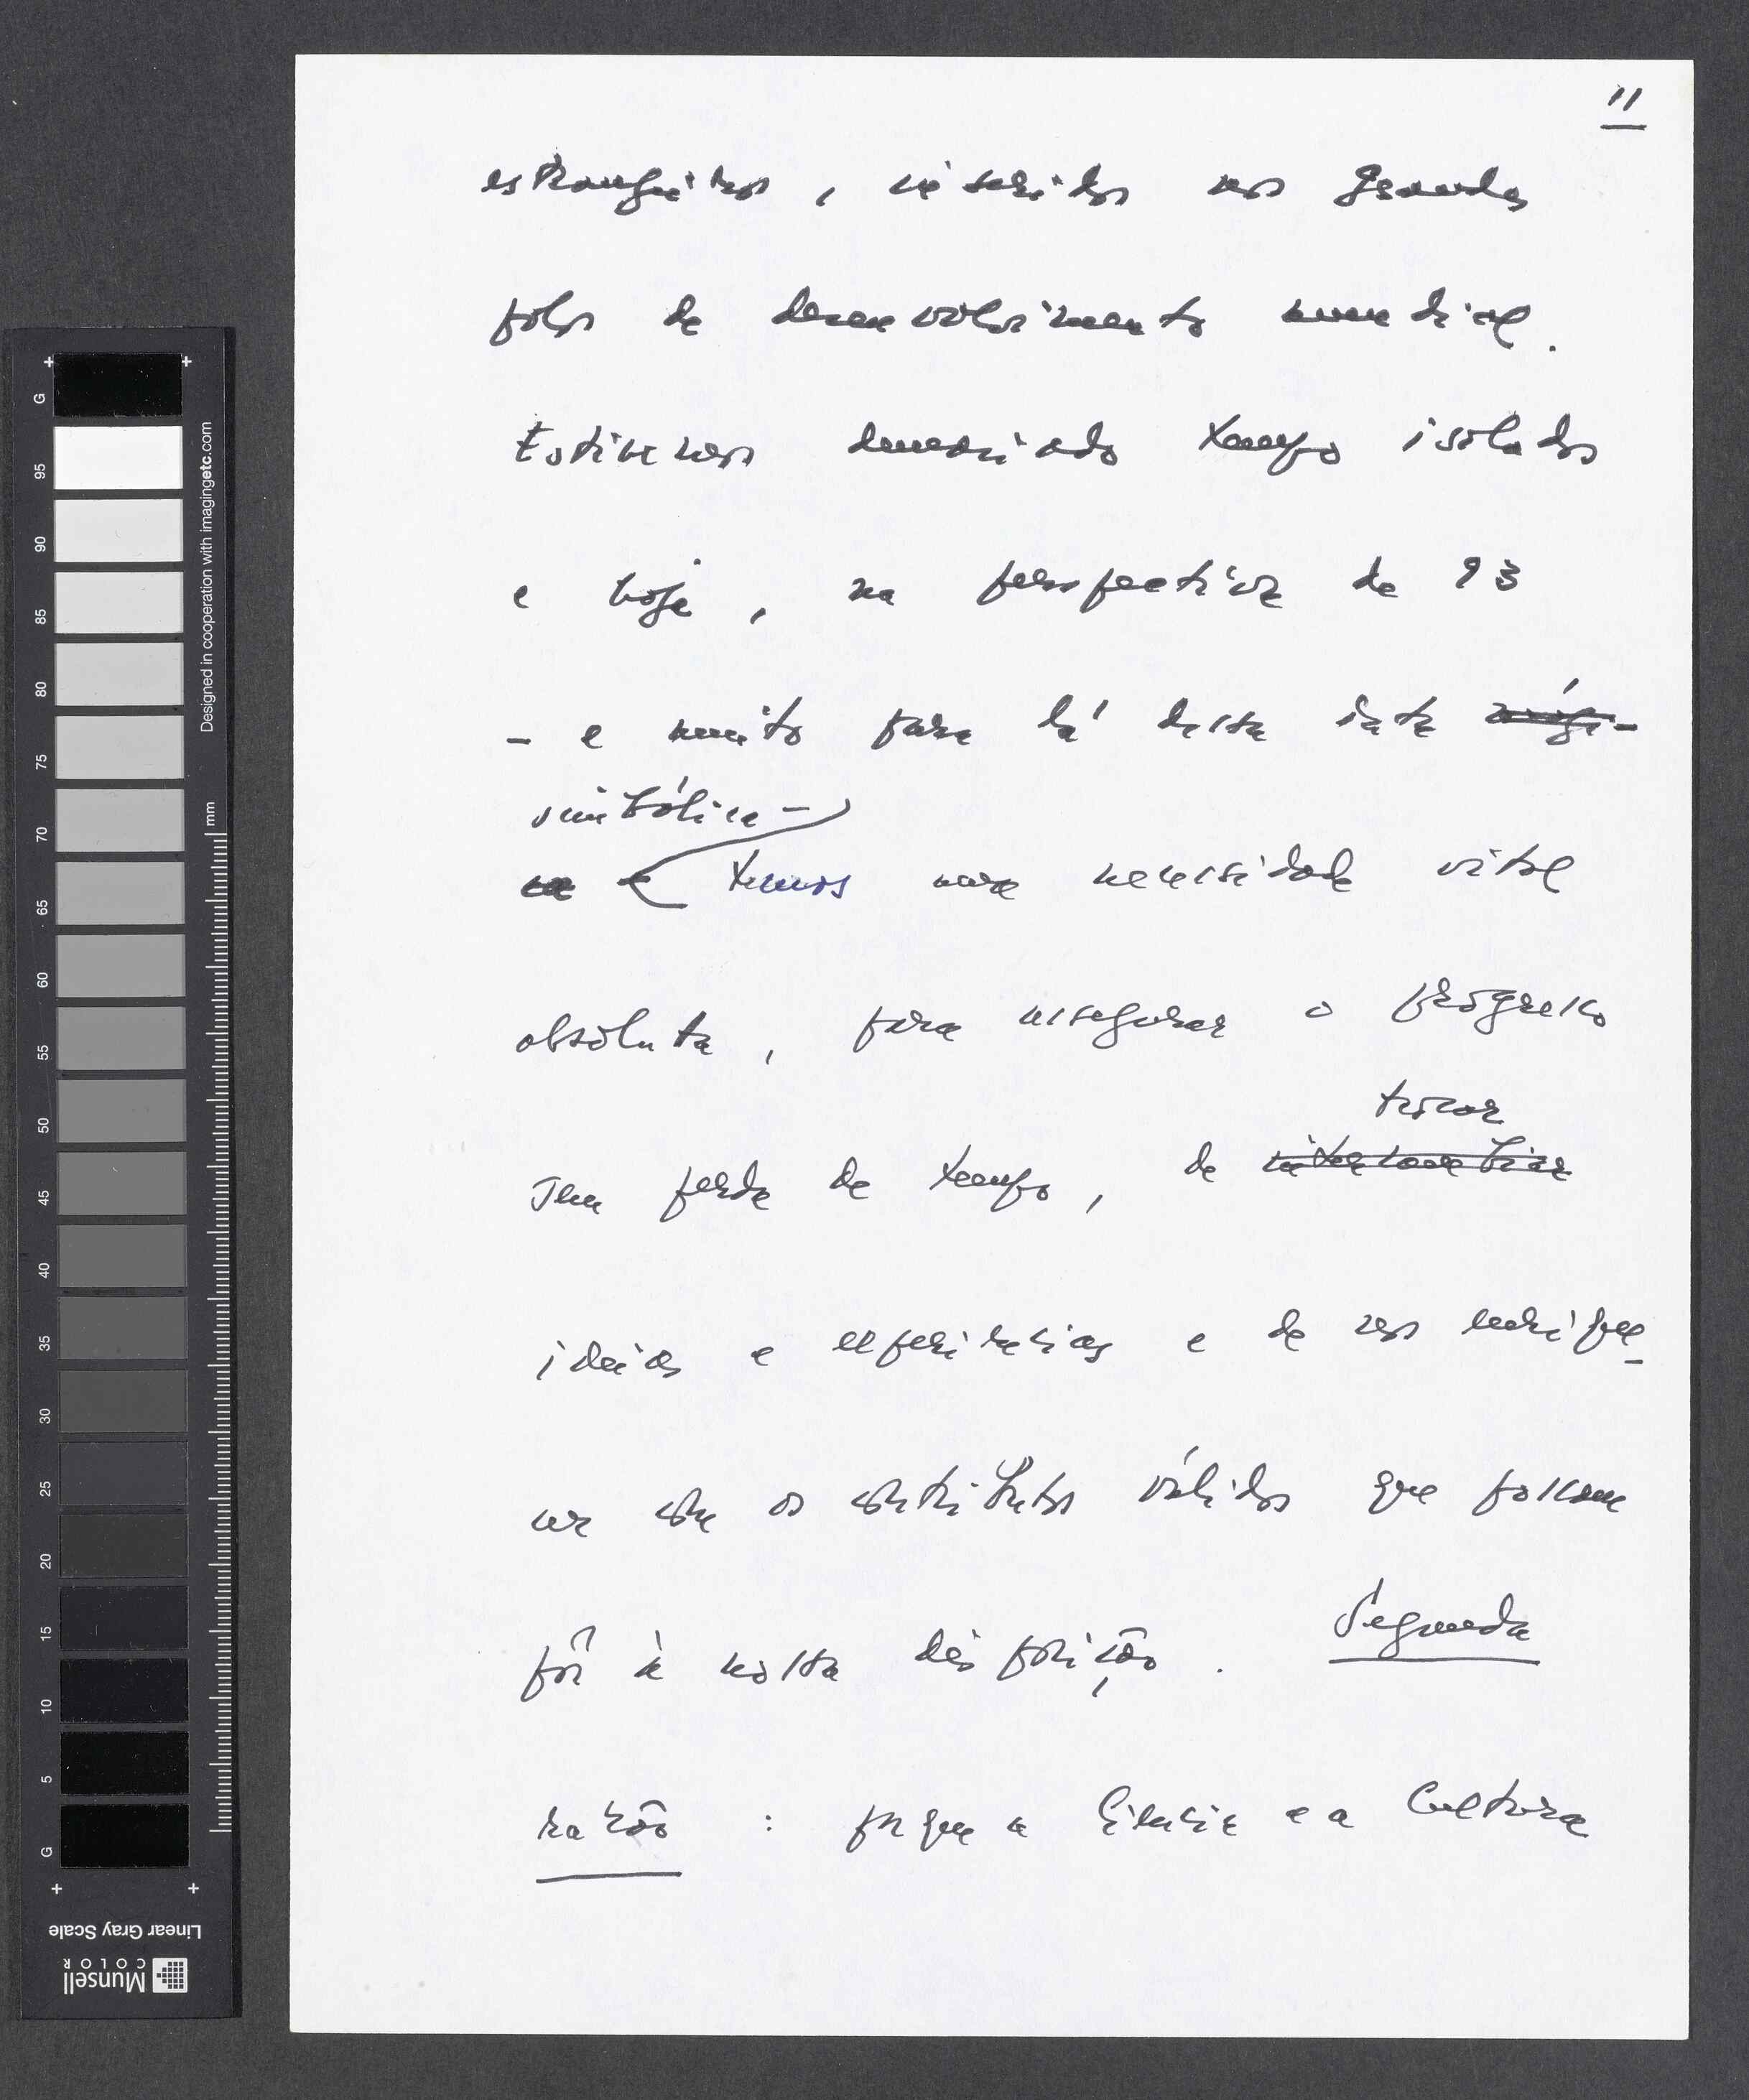 11
estrangeiros, inseridos nos grandes
polos de desenvolvimento mundial.
Estivemos demasiado tempo isolados
e hoje, na perspectiva de 93
- e muito para lá desta data mági-
simbólica -
ca e temos uma necessidade vital
absoluta, para assegurar o progresso
trocar
sem perda de tempo, de intercambiar
ideias e experiências e de nos enrique-
cer com os contributos válidos que possam
pôr à nossa disposição. Segunda
razão : porque a Ciência e a Cultura
G
95
90
85
80
75
70
65
60
55
50
45
40
35
30
25
20
15
10
5
G
Designed in cooperation with imagingetc.com
mm
Linear Gray Scale
Munsell
COLOR